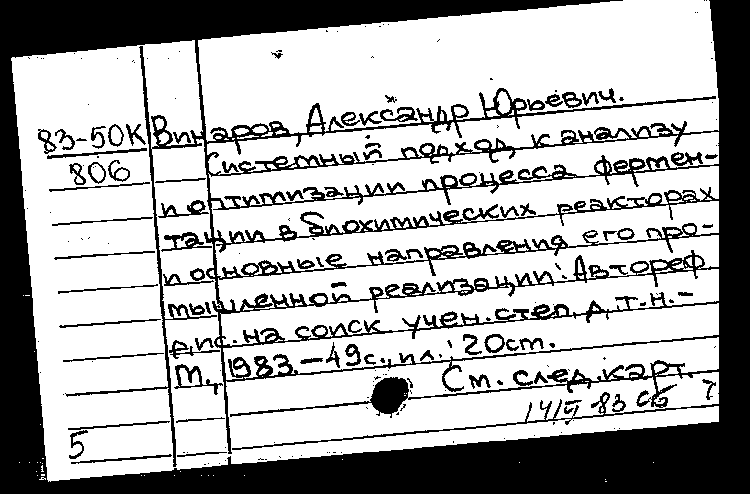 83-50К Винаров, Александр Юрьевич.
806 Системный подход к анализу
и оптимизации процесса фермен-
тации в биохимических реакторах
и основные направления его про-
мышленной реализации: Автореф.
дис. на соиск учен. степ. д.т.н.-
М., 1983.-49с., ил.; 20см.
См. след. карт.
83
5